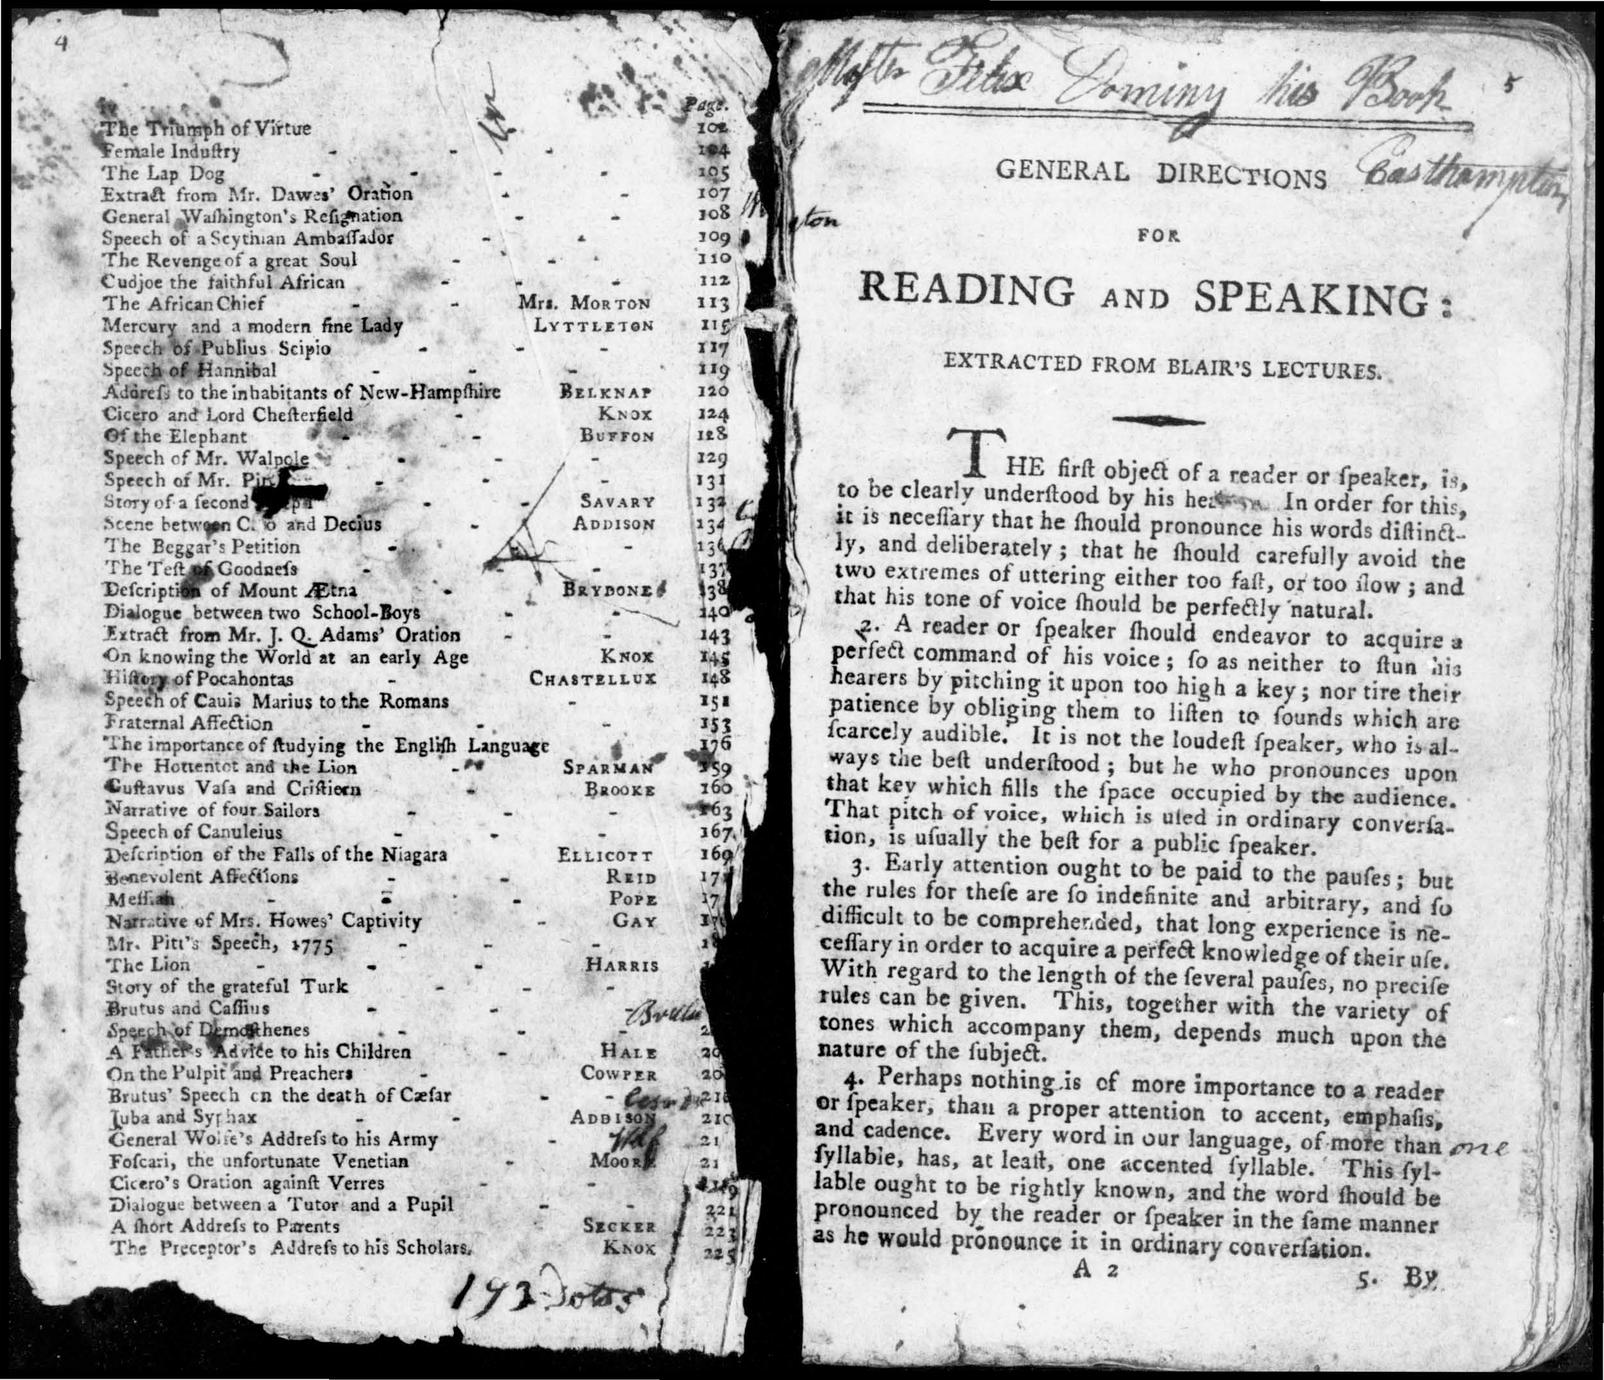 4
Page.
The Triumph of Virtue 102
Female Induſtry - - - 104
The Lap Dog - - - 105
Extract from Mr. Dawes' Oration - - 107
General Waſhington's Reſignation - - 108
Speech of a Scythian Ambaſſador - - 109
The Revenge of a great Soul - - - 110
Cudjoe the faithful African - - - 112
The African Chief - - Mrs. MORTON 113
Mercury and a modern fine Lady LYTTLETON 115
Speech of Publius Scipio - - - 117
Speech of Hannibal - - - 119
Addreſs to the inhabitants of New-Hampſhire BELKNAP 120
Cicero and Lord Cheſterfield - KNOX 124
Of the Elephant - - BUFFON 128
Speech of Mr. Walpole - - - 129
Speech of Mr. - - - 131
Story of a ſecond - SAVARY 132
Scene between and Decius - ADDISON 134
The Beggar's Petition - - 136
The Teſt of Goodneſs - - - 137
Deſcription of Mount Ætna - BRYDONE 138
Dialogue between two School-Boys - - 140
Extract from Mr. J. Q. Adams' Oration - - 143
On knowing the World at an early Age KNOX 145
Hiſtory of Pocahontas - CHASTELLUX 148
Speech of Cauis Marius to the Romans - 151
Fraternal Affection - - - 153
The importance of ſtudying the Engliſh Language 176
The Hottentot and the Lion - SPARMAN 159
Guſtavus Vaſa and Criſtiern - BROOKE 160
Narrative of four Sailors - - - 163
Speech of Canuleius - - - 167
Deſcription of the Falls of the Niagara ELLICOTT 169
Benevolent Affections - - REID 17
Meſſiah - - - POPE 17
Narrative of Mrs. Howes' Captivity - GAY
Mr. Pitt's Speech, 1775 - - -
The Lion - - - HARRIS
Story of the grateful Turk - - -
Brutus and Caſſius - -
Speech of Demoſthenes - - - 2
A Father's Advice to his Children - HALE 20
On the Pulpit and Preachers - COWPER 20
Brutus' Speech on the death of Cæſar - - 210
Juba and Syphax - - ADDISON 210
General Wolfe's Addreſs to his Army - 21
Foſcari, the unfortunate Venetian - MOORE 21
Cicero's Oration againſt Verres - - 219
Dialogue between a Tutor and a Pupil - - 221
A ſhort Addreſs to Parents SECKER 223
The Preceptor's Addreſs to his Scholars. KNOX 225
193
Felix Dominy his Book
5
Easthampton
GENERAL DIRECTIONS
ton
FOR
READING AND SPEAKING:
EXTRACTED FROM BLAIR'S LECTURES.
THE firſt object of a reader or ſpeaker, is,
to be clearly underſtood by his In order for this,
it is neceſſary that he ſhould pronounce his words diſtinct-
ly, and deliberately; that he ſhould carefully avoid the
two extremes of uttering either too faſt, or too ſlow; and
that his tone of voice ſhould be perfectly natural.
2. A reader or ſpeaker ſhould endeavor to acquire a
perfect command of his voice; ſo as neither to ſtun his
hearers by pitching it upon too high a key; nor tire their
patience by obliging them to liſten to ſounds which are
ſcarcely audible. It is not the loudeſt ſpeaker, who is al-
ways the beſt underſtood; but he who pronounces upon
that key which fills the ſpace occupied by the audience.
That pitch of voice, which is uſed in ordinary converſa-
tion, is uſually the beſt for a public ſpeaker.
3. Early attention ought to be paid to the pauſes; but
the rules for theſe are ſo indefinite and arbitrary, and ſo
difficult to be comprehended, that long experience is ne-
ceſſary in order to acquire a perfect knowledge of their uſe.
With regard to the length of the ſeveral pauſes, no preciſe
rules can be given. This, together with the variety of
tones which accompany them, depends much upon the
nature of the ſubject.
4. Perhaps nothing is of more importance to a reader
or ſpeaker, than a proper attention to accent, emphaſis,
and cadence. Every word in our language, of more than one
ſyllable, has, at leaſt, one accented ſyllable. This ſyl-
lable ought to be rightly known, and the word ſhould be
pronounced by the reader or ſpeaker in the ſame manner
as he would pronounce it in ordinary converſation.
A 2 5. By